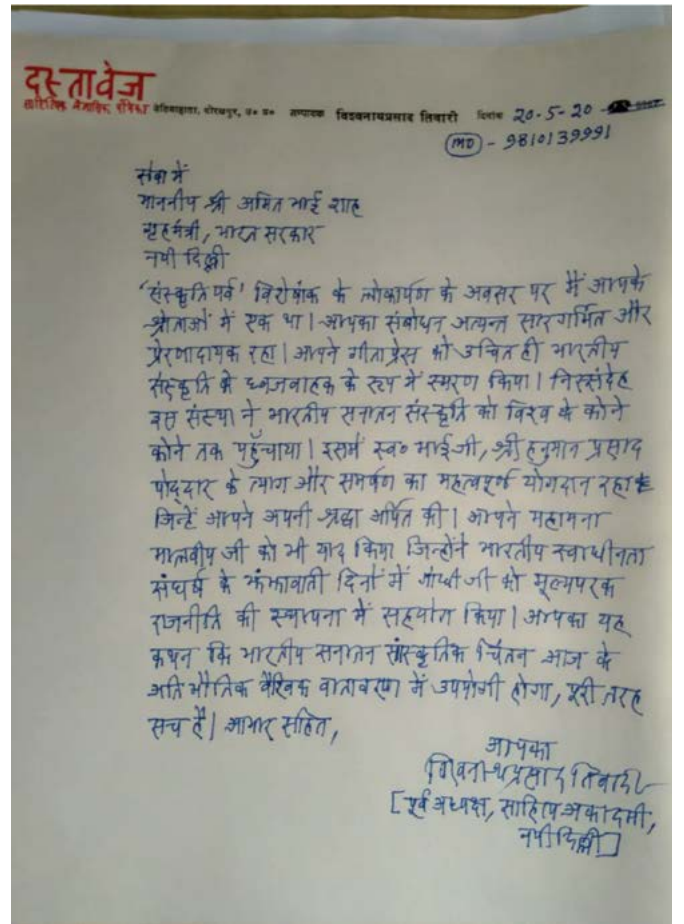 दस्तावेज
साहित्यिक त्रैमासिक पत्रिका बेतियाहाता, गोरखपुर, उ० प्र० सम्पादक विश्वनाथप्रसाद तिवारी दिनांक 20-5-20
(MO) - 9810139991
सेवा में
माननीय श्री अमित भाई शाह
गृहमंत्री, भारत सरकार
नयी दिल्ली
'संस्कृति पर्व' विशेषांक के लोकार्पण के अवसर पर मैं आपके
श्रोताओं में एक था। आपका संबोधन अत्यन्त सारगर्भित और
प्रेरणादायक रहा। आपने गीताप्रेस को उचित ही भारतीय
संस्कृति के ध्वजवाहक के रूप में स्मरण किया। निस्संदेह
इस संस्था ने भारतीय सनातन संस्कृति को विश्व के कोने
कोने तक पहुँचाया। इसमें स्व० भाईजी, श्री हनुमान प्रसाद
पोद्दार के त्याग और समर्पण का महत्वपूर्ण योगदान रहा
जिन्हें आपने अपनी श्रद्धा अर्पित की। आपने महामना
मालवीय जी को भी याद किया जिन्होंने भारतीय स्वाधीनता
संघर्ष के झंझावाती दिनों में गांधी जी को मूल्यपरक
राजनीति की स्थापना में सहयोग किया। आपका यह
कथन कि भारतीय सनातन सांस्कृतिक चिंतन आज के
अति भौतिक वैश्विक वातावरण में उपयोगी होगा, पूरी तरह
सच है। आभार सहित,
आपका
विश्वनाथप्रसाद तिवारी
[पूर्व अध्यक्ष, साहित्य अकादमी,
नयी दिल्ली]